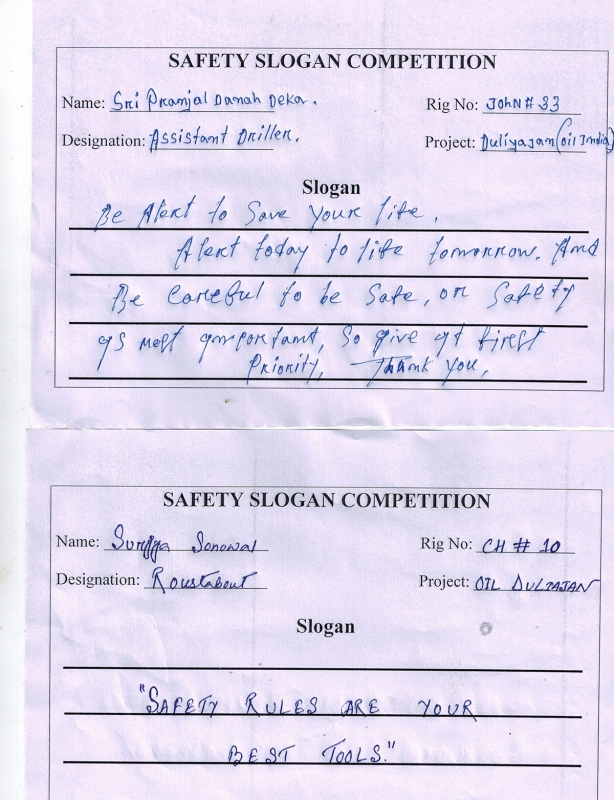 SAFETY SLOGAN COMPETITION
Name: Sri Pranjal Danah Deka. Rig No: JOHN # 33
Designation: Assistant Driller. Project: Duliyajan (oil India)
Slogan
Be Alert to Save your life.
Alert today to life tomorrow. And
Be careful to be Safe, or Safety
is most important, So give it first
Priority, Thank you,
SAFETY SLOGAN COMPETITION
Name: Surjya Sonowal Rig No: CH # 10
Designation: Roustabout Project: OIL DULIAJAN
Slogan
"SAFETY RULES ARE YOUR
BEST TOOLS."